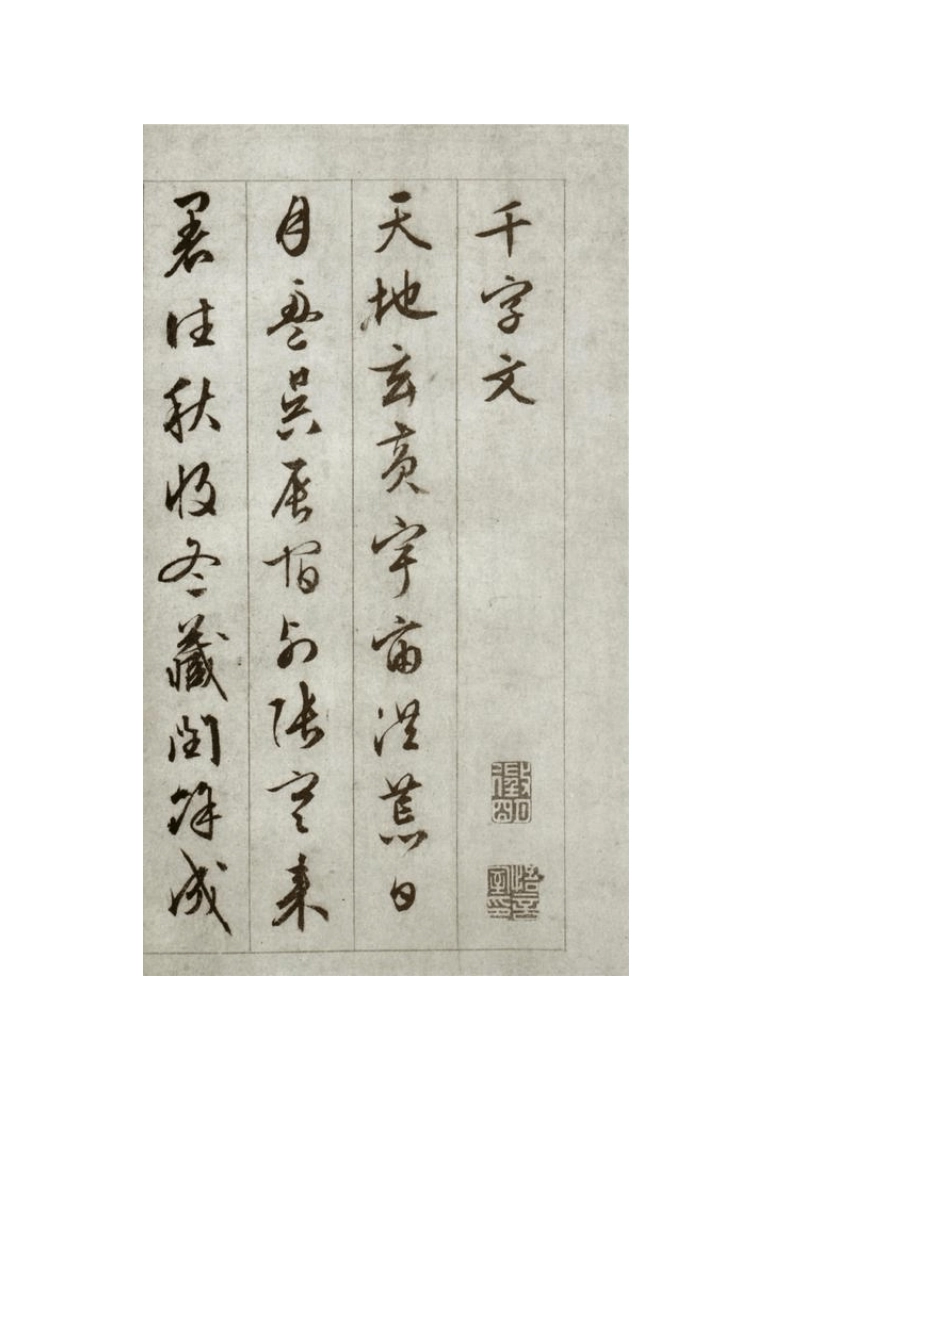 千字文
天地玄黄宇宙洪荒日
月盈昃辰宿列张寒来
暑往秋收冬藏闰馀成